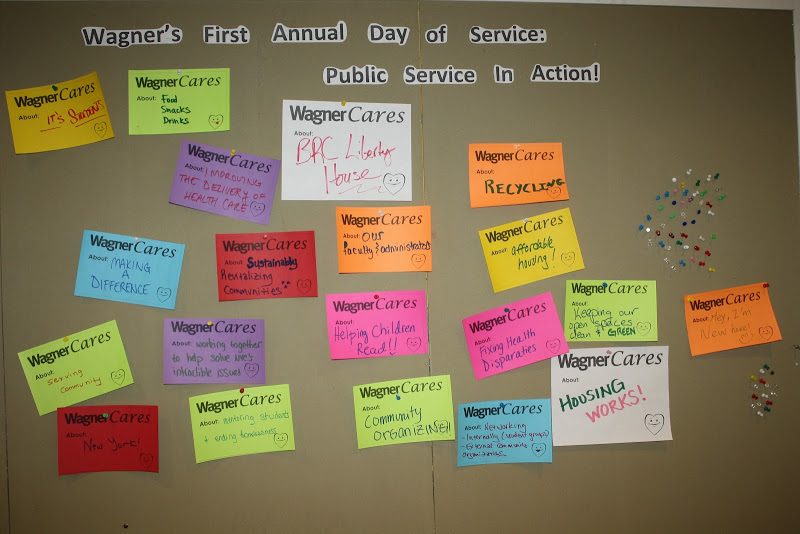 Wagner's First Annual Day of Service:
Public Service In Action!
WagnerCares
About:
IT'S STUDENTS
WagnerCares
About: Food
Snacks
Drinks
WagnerCares
About:
BRC Liberty
House
WagnerCares
About: IMPROVING
THE DELIVERY OF
HEALTH CARE
WagnerCares
About:
RECYCLING
WagnerCares
About: Our
faculty & administrators
WagnerCares
About: affordable
housing!
WagnerCares
About:
MAKING
A
DIFFERENCE
WagnerCares
About: Sustainably
Revitalizing
Communities
WagnerCares
About:
Helping Children
Read!!
WagnerCares
About:
Fixing Health
Disparaties
WagnerCares
About:
Keeping our
open spaces
clean & GREEN
WagnerCares
About: Hey, I'm
New here!
WagnerCares
About:
Serving
Community
WagnerCares
About: working together
to help solve
issues!
WagnerCares
About:
HOUSING
WORKS!
WagnerCares
About:
New York!
WagnerCares
About: mentoring students
+ ending homelessness
WagnerCares
About:
COMMUNITY
ORGANIZING!!
WagnerCares
About: Networking
- Internally (student groups)
- External community
organizations